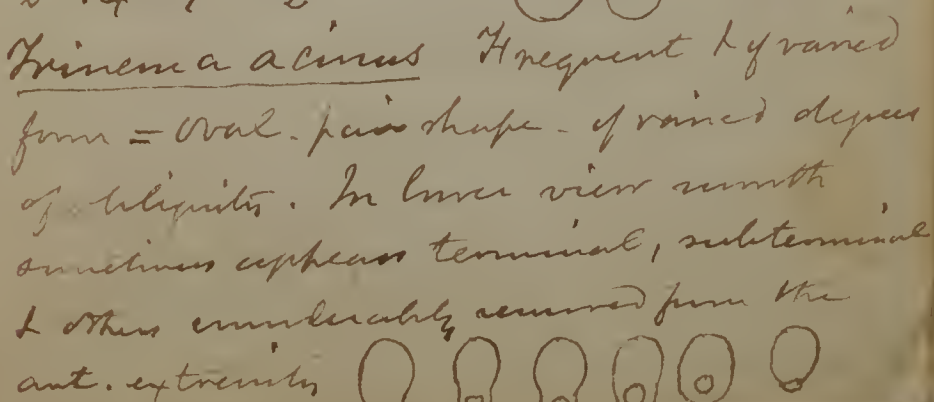 Trinema acinus Frequent & of varied
form = oval. pair shape - of varied degrees
of obliquity. In lower view mouth
sometimes appears terminal, subterminal
& others considerably removed from the
ant. extremity